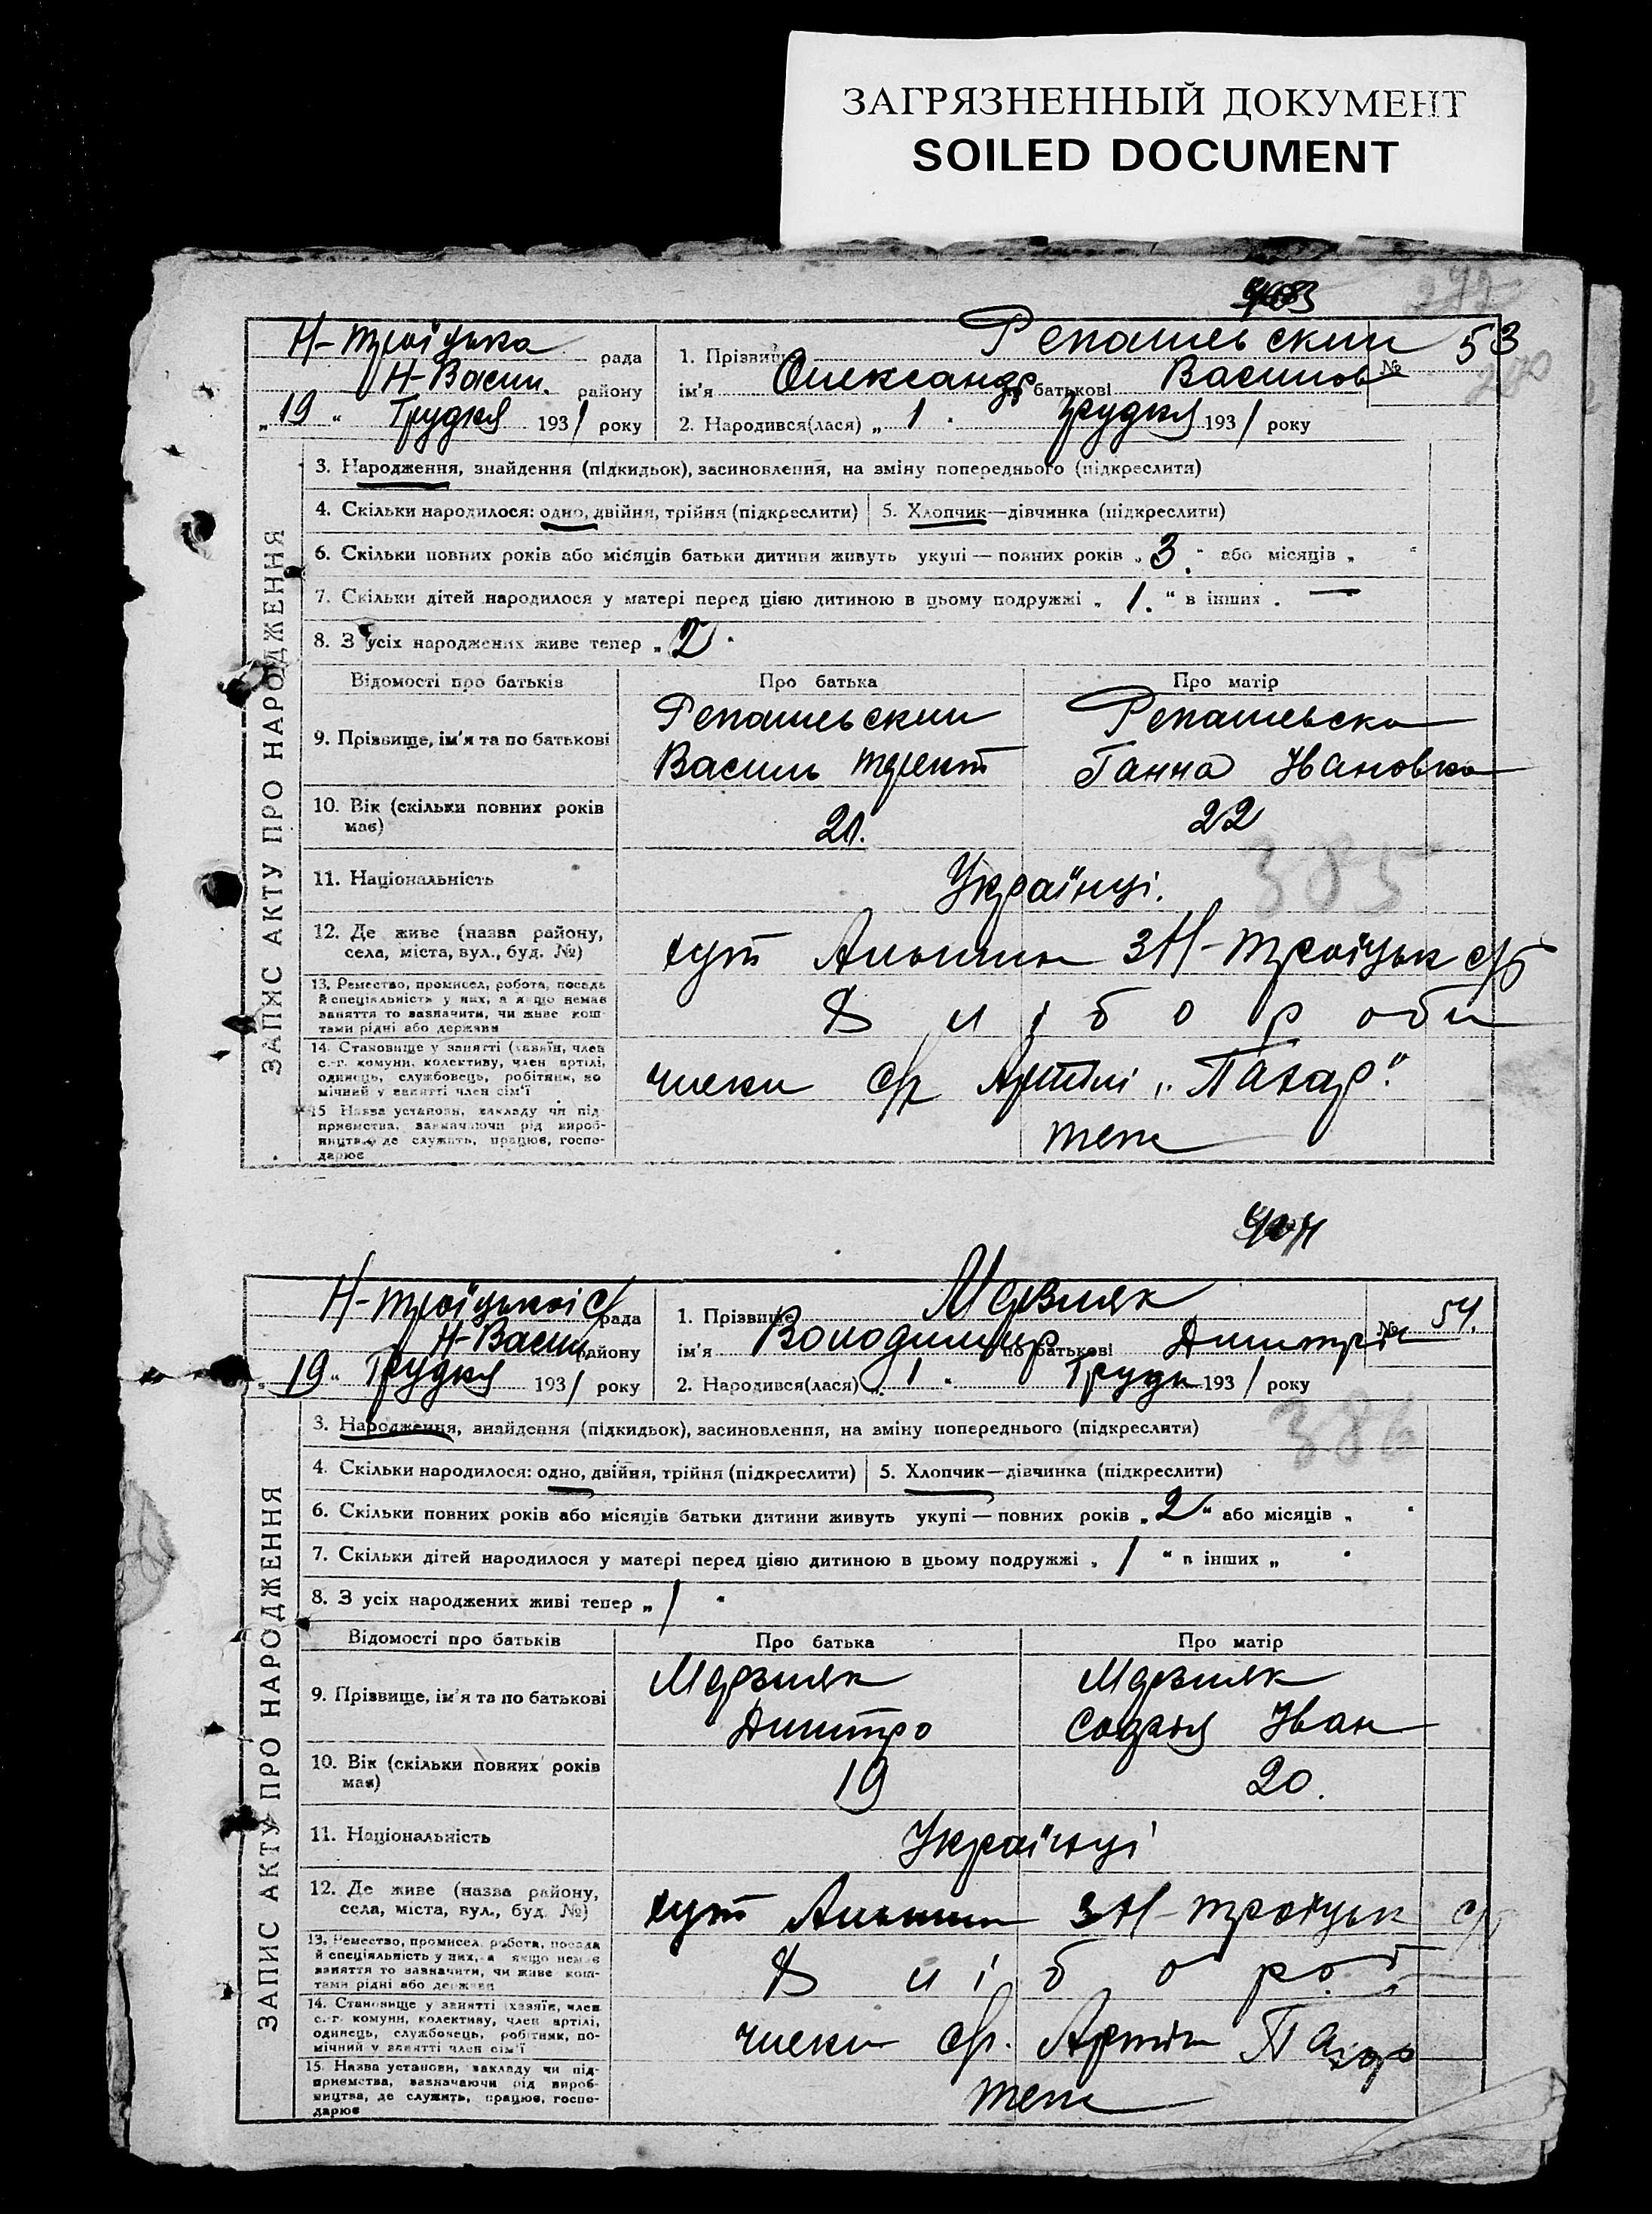 ЗАГРЯЗНЕННЫЙ ДОКУМЕНТ
SOILED DOCUMENT
ЗАПИС АКТУ ПРО НАРОДЖЕННЯ
Н-Троїцька рада
Н-Васил. району
„19“ Грудня 1931 року
1. Прізвище Репашевський № 53
ім'я Олександр по батькові Васильов
2. Народився(лася) „1“ Грудня 1931 року
3. Народження, знайдення (підкидьок), засиновлення, на зміну попереднього (підкреслити)
4. Скільки народилося: одно, двійня, трійня (підкреслити) 5. Хлопчик—дівчинка (підкреслити)
6. Скільки повних років або місяців батьки дитини живуть укупі — повних років „3“ або місяців „
7. Скільки дітей народилося у матері перед цією дитиною в цьому подружжі „1.“ в інших „ —
8. З усіх народжених живе тепер „2“
Відомості про батьків Про батька Про матір
9. Прізвище, ім'я та по батькові
Репашевський Репашевська
Василь Ганна Івановна
10. Вік (скільки повних років має)
21. 22
11. Національність Українці.
385
12. Де живе (назва району, села, міста, вул., буд. №)
хут з Н-Троїцьк с/р
13. Ремество, промисел, робота, посада й спеціяльність у них, а якщо немає заняття то зазначити, чи живе коштами рідні або держави
14. Становище у занятті (хазяїн, член с.-г. комуни, колективу, член артілі, одинець, службовець, робітник, помічний у занятті член сім'ї
члени с/г Артілі „Пахар“
15. Назва установи, закладу чи підприємства, зазначаючи рід виробництва, де служить, працює, господарює
теж
ЗАПИС АКТУ ПРО НАРОДЖЕННЯ
Н-Троїцької с/рада
Н-Васил району
„19“ Грудня 1931 року
1. Прізвище № 54.
ім'я Володимир по батькові Дмитрів
2. Народився(лася) „1“ Грудн 1931 року
386
3. Народження, знайдення (підкидьок), засиновлення, на зміну попереднього (підкреслити)
4. Скільки народилося: одно, двійня, трійня (підкреслити) 5. Хлопчик—дівчинка (підкреслити)
6. Скільки повних років або місяців батьки дитини живуть укупі — повних років „2“ або місяців „
7. Скільки дітей народилося у матері перед цією дитиною в цьому подружжі „1“ в інших „
8. З усіх народжених живі тепер „1“
Відомості про батьків Про батька Про матір
9. Прізвище, ім'я та по батькові
Дмитро Іван
10. Вік (скільки повних років має)
19 20.
11. Національність Українці
12. Де живе (назва району, села, міста, вул., буд. №)
хут з Н-Троїцьк с/р
13. Ремество, промисел, робота, посада й спеціяльність у них, а якщо немає заняття то зазначити, чи живе коштами рідні або держави
14. Становище у занятті (хазяїн, член с.-г. комуни, колективу, член артілі, одинець, службовець, робітник, помічний у занятті член сім'ї
члени с/г. Артілі Пахар
15. Назва установи, закладу чи підприємства, зазначаючи рід виробництва, де служить, працює, господарює
теж